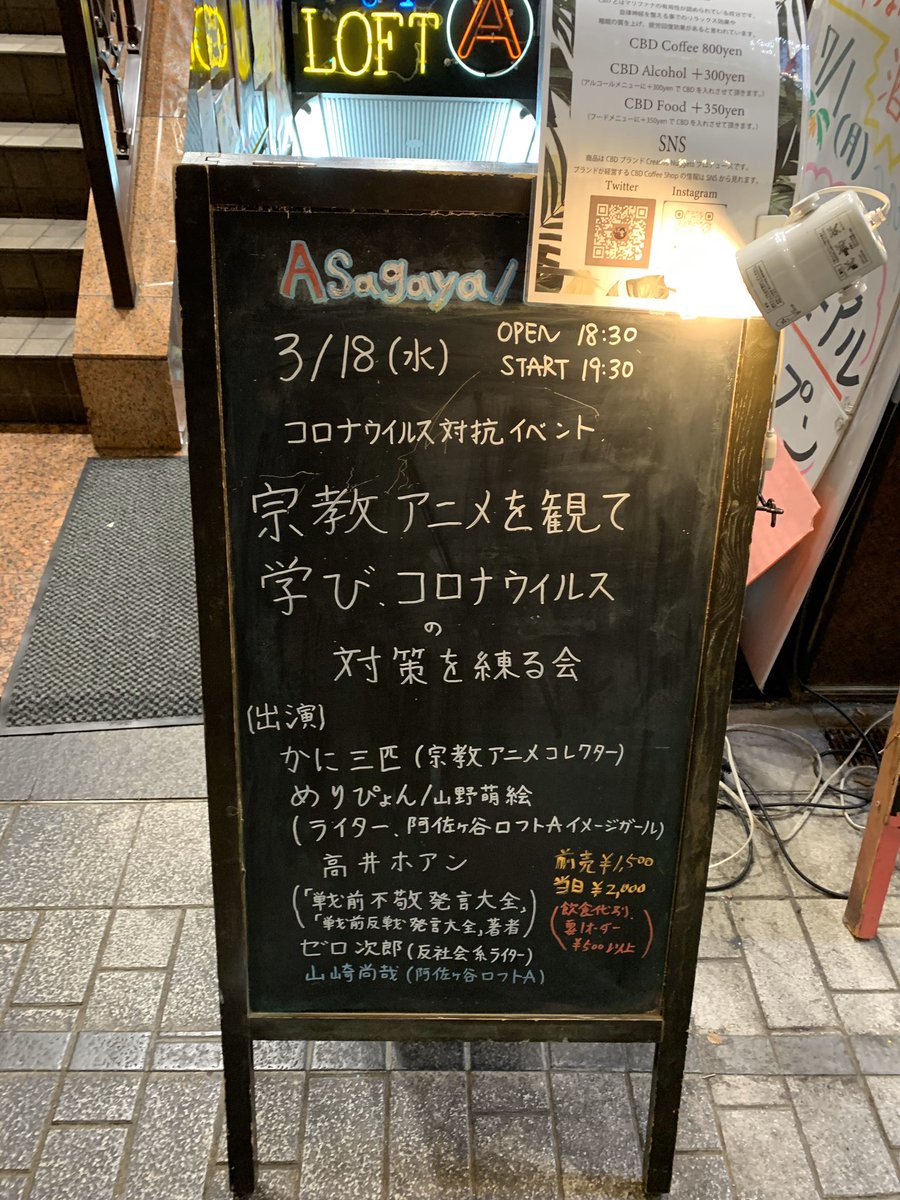 LOFT A
CBD Coffee 800yen
CBD Alcohol +300yen
(アルコールメニューに+300yen で CBD を入れさせて頂きます。)
CBD Food +350yen
(フードメニューに+350yen で CBD を入れさせて頂きます。)
SNS
ブランドが経営する CBD Coffee Shop の情報は SNS から見れます。
Twitter
Instagram
7/1
(月)
Asagaya/
3/18(水)
OPEN 18:30
START 19:30
コロナウイルス対抗イベント
宗教アニメを観て
学び、コロナウイルス
の
対策を練る会
(出演)
かに三匹(宗教アニメコレクター)
めりぴょん/山野萌絵
(ライター、阿佐ヶ谷ロフトAイメージガール)
高井ホアン
(「戦前不敬発言大全」
「戦前反戦発言大全」著者)
ゼロ次郎(反社会系ライター)
山崎尚哉(阿佐ヶ谷ロフトA)
前売¥1,500
当日¥2,000
(飲食代別、
要1オーダー
¥500以上)